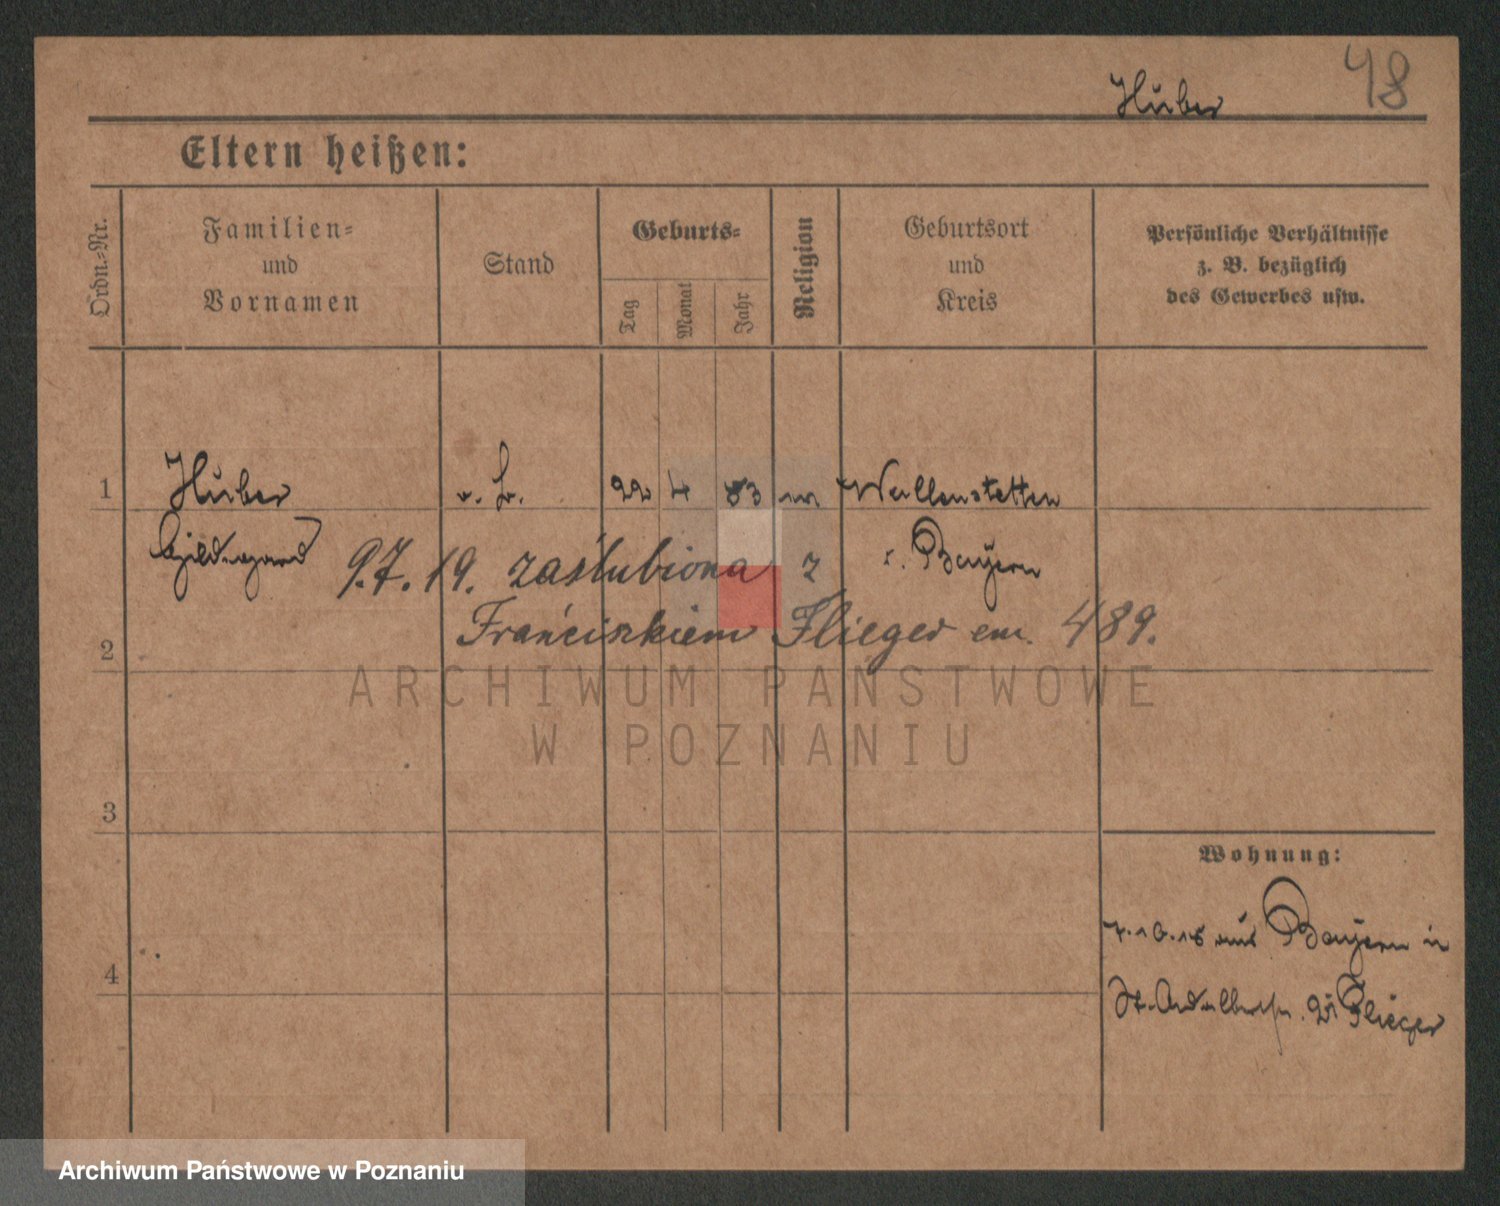 48
Huber
Eltern heißen:
Ordn.-Nr.
Familien-
und
Vornamen
Stand
Geburts-
Tag
Monat
Jahr
Religion
Geburtsort
und
Kreis
Persönliche Verhältnisse
z. B. bezüglich
des Gewerbes usw.
1
Huber
22 4 83
Wallenstetten
Hildegard
i. Bayern
9.7.19. zaślubiona z
Franciszkiem Flieger em. 489.
2
ARCHIWUM PAŃSTWOWE
W POZNANIU
3
Wohnung:
aus Bayern in
St. Adalbertstr. Flieger
4
Archiwum Państwowe w Poznaniu